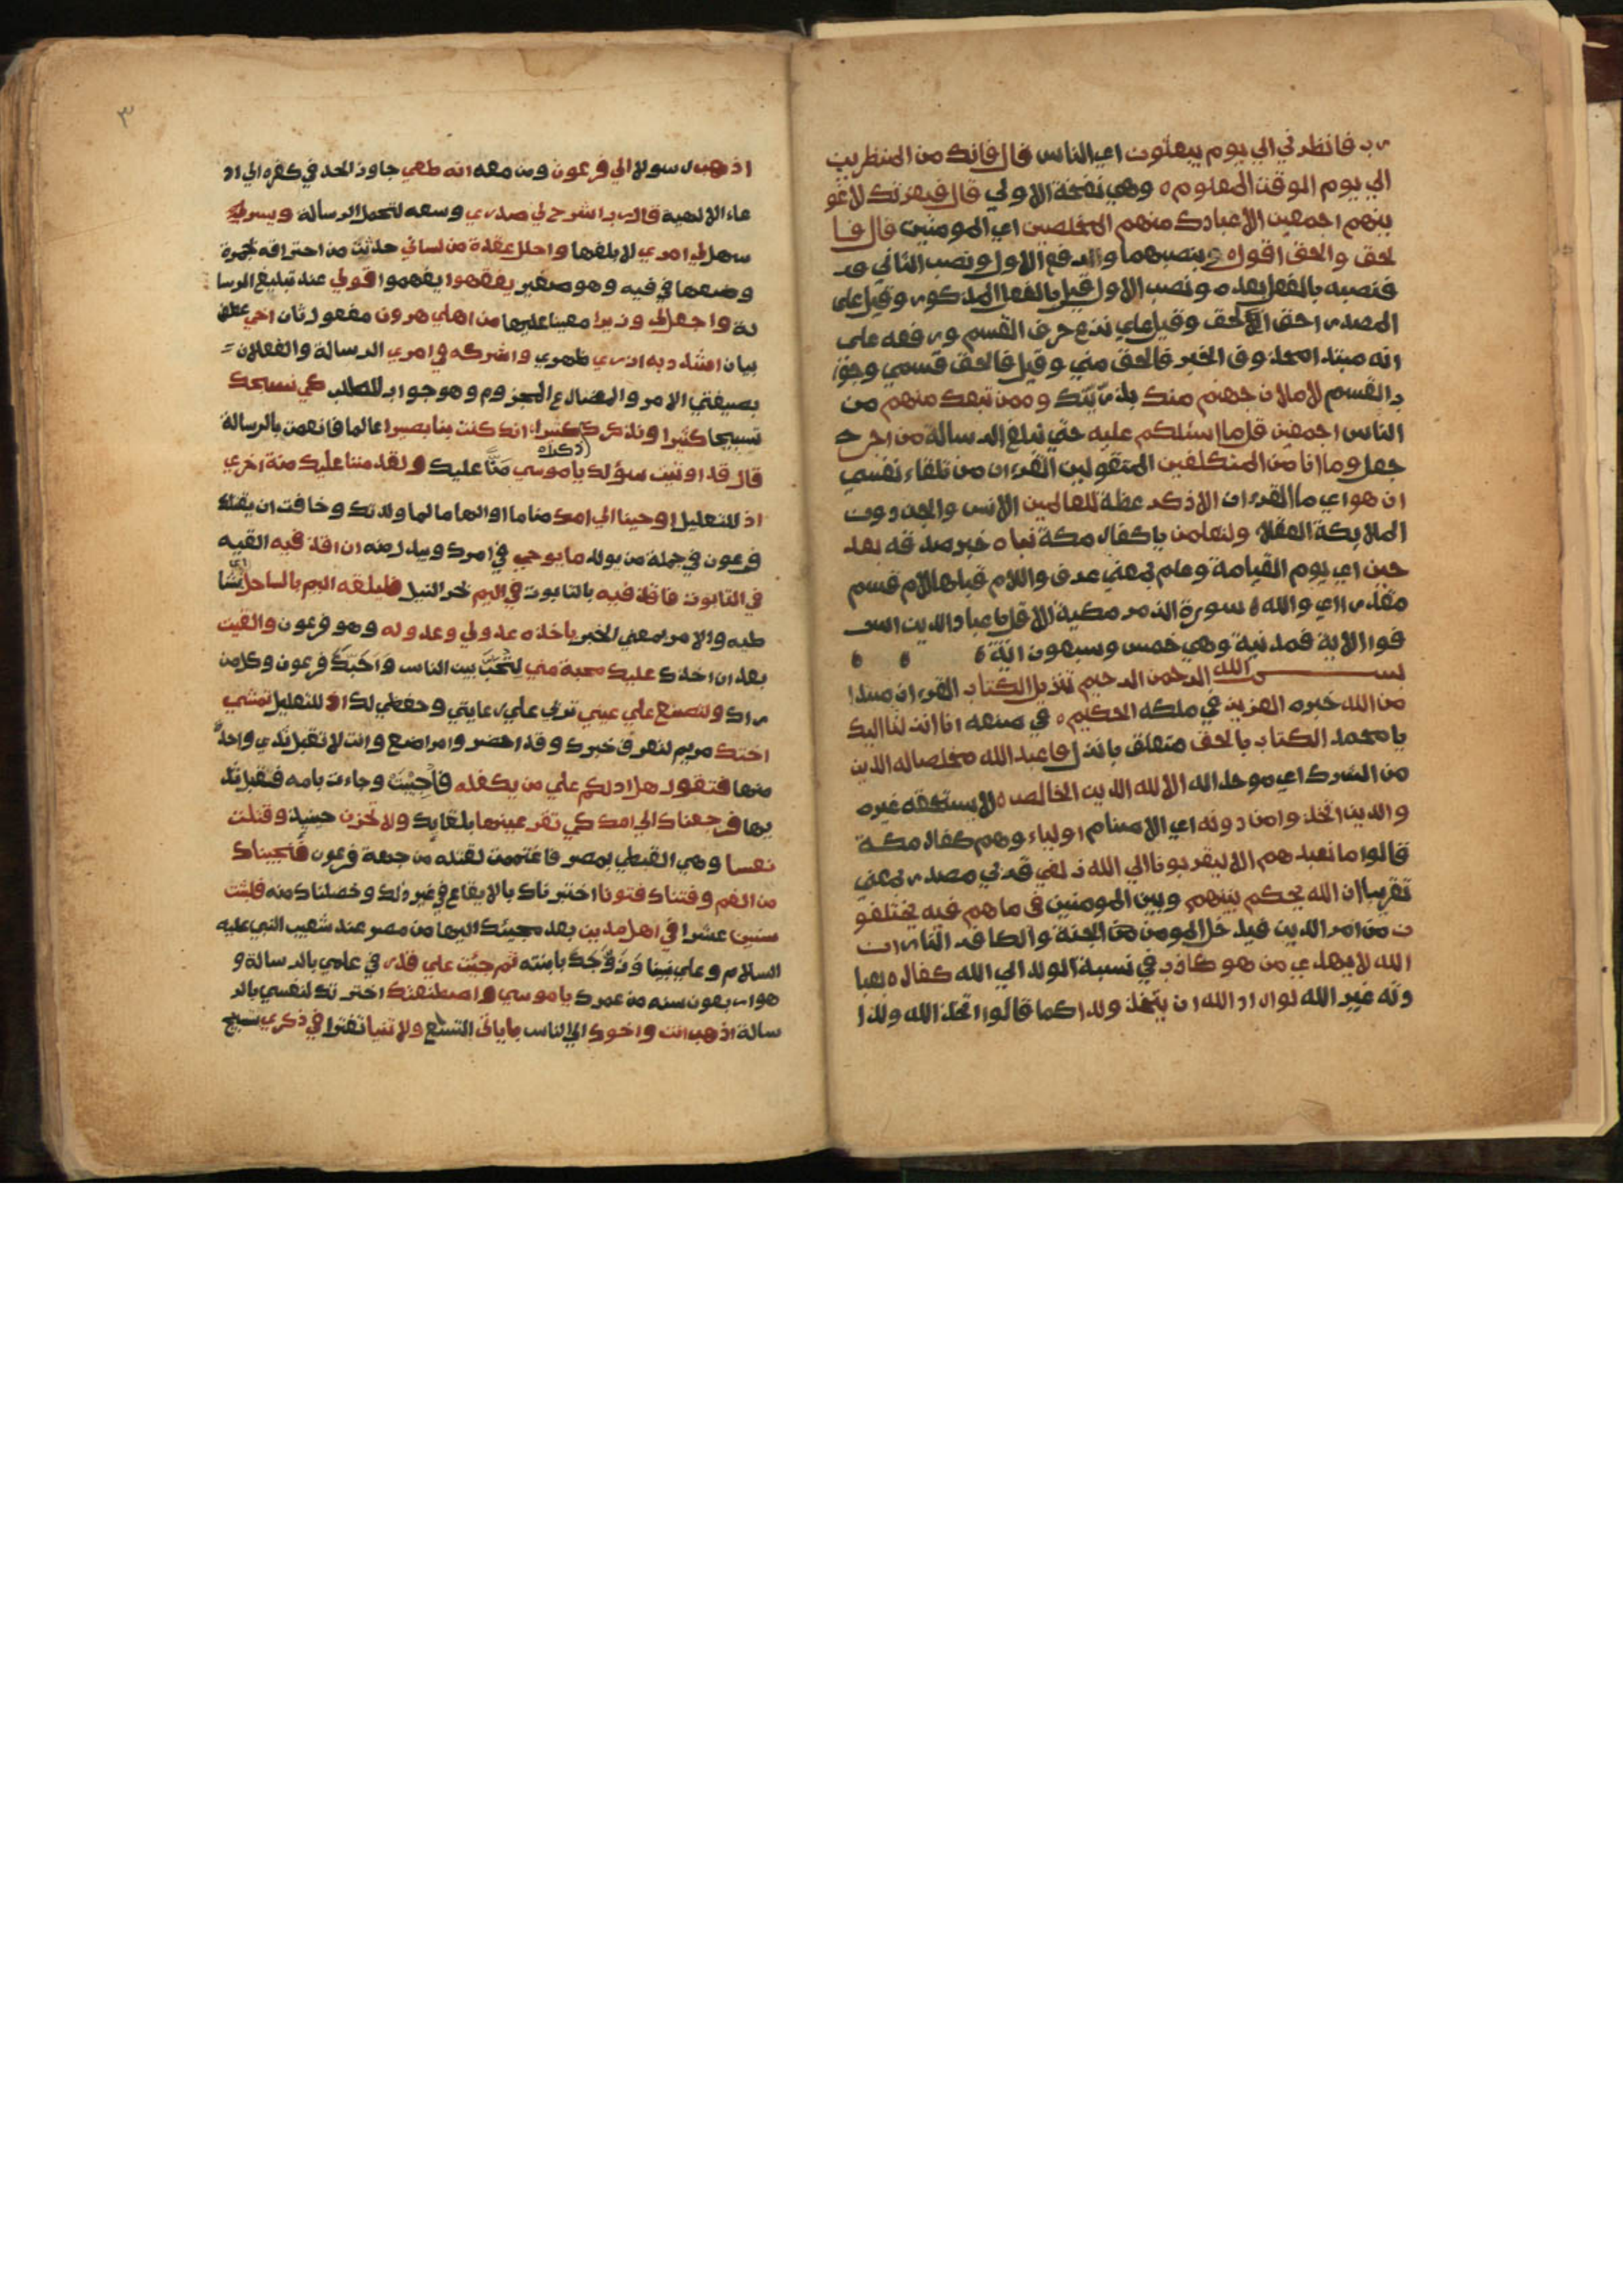 رب فانظرني الي يوم يبعثون اي الناس قال فانك من المنظرين
الي يوم الوقت المعلوم ه وهي نفخة الاولي قال فبعزتك لاغو
ينهم اجمعين الا عبادك منهم المخلصين اي المومنين قال فا
لحق والحق اقول ه بنصبهما والرفع الاول ونصب الثاني و
فنصبه بالفعل بعده ونصب الاول قيل بالفعل المذكور وقيل علي
المصدر احق الحق وقيل علي نزع حرف القسم ورفعه علي
انه مبتدا محذوف الخبر فالحق مني وقيل فالحق قسمي وجوا
ب القسم لاملان جهنم منك بذريتك وممن تبعك منهم من
الناس اجمعين قل ما اسئلكم عليه حتي تبلغ الرسالة من اجر
جعل وما انا من المتكلفين المتقولين القران من تلقاء نفسي
ان هو اي ما القران الا ذكر عظة للعالمين الانس والجن دون
الملايكة العقلا ولتعلمن يا كفار مكة نباه خبر صدقه بعد
حين اي يوم القيامة وعلم بمعني عرف واللام قبلها لام قسم
مقدر اي والله ه سورة الزمر مكية الا قل يا عبادي الذين اسر
فوا الاية فمدنية وهي خمس وسبعون اية ه
بسم الله الرحمن الرحيم تنزيل الكتاب القران مبتدا
من الله خبره العزيز في ملكه الحكيم ه في صنعه انا انزلنا اليك
يا محمد الكتاب بالحق متعلق بانزل فاعبد الله مخلصا له الدين
من الشرك اي موحد اله الا لله الدين الخالص ه لا يستحقه غيره
والذين اتخذوا من دونه اي الاصنام اولياء وهم كفار مكة
قالوا ما نعبدهم الا ليقربونا الي الله زلفي قربي مصدر بمعني
تقريبا ان الله يحكم بينهم وبين المومنين في ما هم فيه يختلفو
ن من امر الدين فيدخل المومن الجنة والكافر النار ان
الله لا يهدي من هو كاذب في نسبة الولد الي الله كفار ه بعبا
دته غير الله لو اراد الله ان يتخذ ولدا كما قالوا اتخذ الله ولدا
٣
اذهب رسولا الي فرعون ومن معه انه طغي جاوز الحد في كفره الي اد
عاء الالهية قال رب اشرح لي صدري وسعه لتحمل الرسالة ويسر لي
سهل لي امري لابلغها واحلل عقدة من لساني حدثت من احتراقه بجمرة
وضعها في فيه وهو صغير يفقهوا يفهموا قولي عند تبليغ الرسا
لة واجعل لي وزيرا معينا عليها من اهلي هرون مفعول ثان اخي عطف
بيان اشدد به ازري ظهري واشركه في امري الرسالة والفعلان
بصيغتي الامر والمضارع المجزوم وهو جواب للطلب كي نسبحك
تسبيحا كثيرا ونذكرك كثيرا انك كنت بنا بصيرا عالما فانعمت بالرسالة
قال قد اوتيت سؤلك يا موسي منا عليك ولقد مننا عليك مرة اخري
اذ للتعليل اوحينا الي امك مناما او الهاما لما ولدتك وخافت ان يقتلك
فرعون في جملة من يولد ما يوحي في امرك ويبدل منه ان اقذفيه القيه
في التابوت فاقذفيه بالتابوت في اليم بحر النيل فليلقه اليم بالساحل اي شا
طيه والامر بمعني الخبر ياخذه عدو لي وعدو له وهو فرعون والقيت
بعد ان اخذك عليك محبة مني لتحب بين الناس واحبك فرعون وكل من
راك ولتصنع علي عيني تربي علي رعايتي وحفظي لك اذ للتعليل تمشي
اختك مريم لتعرف خبرك وقد احضروا مراضع وانت لا تقبل ثدي واحدة
منها فتقول هل ادلكم علي من يكفله فاجيبت وجاءت بامه فقبل ثد
يها فرجعناك الي امك كي تقر عينها بلقايك ولا تحزن حينيذ وقتلت
نفسا وهي القبطي بمصر فاغتممت لقتله من جهة فرعون فنجيناك
من الغم وفتناك فتونا اختبرناك بالايقاع في غير ذلك وخلصناك منه فلبثت
سنين عشرا في اهل مدين بعد مجيئك اليها من مصر عند شعيب النبي عليه
السلام وعلي نبينا وتزوجك بابنته ثم جيت علي قدر في علمي بالرسالة و
هو اربعون سنه من عمرك يا موسي واصطنعتك اخترتك لنفسي بالر
سالة اذهب انت واخوك الي الناس باياتي التسع ولا تنيا تفترا في ذكري تسبيح